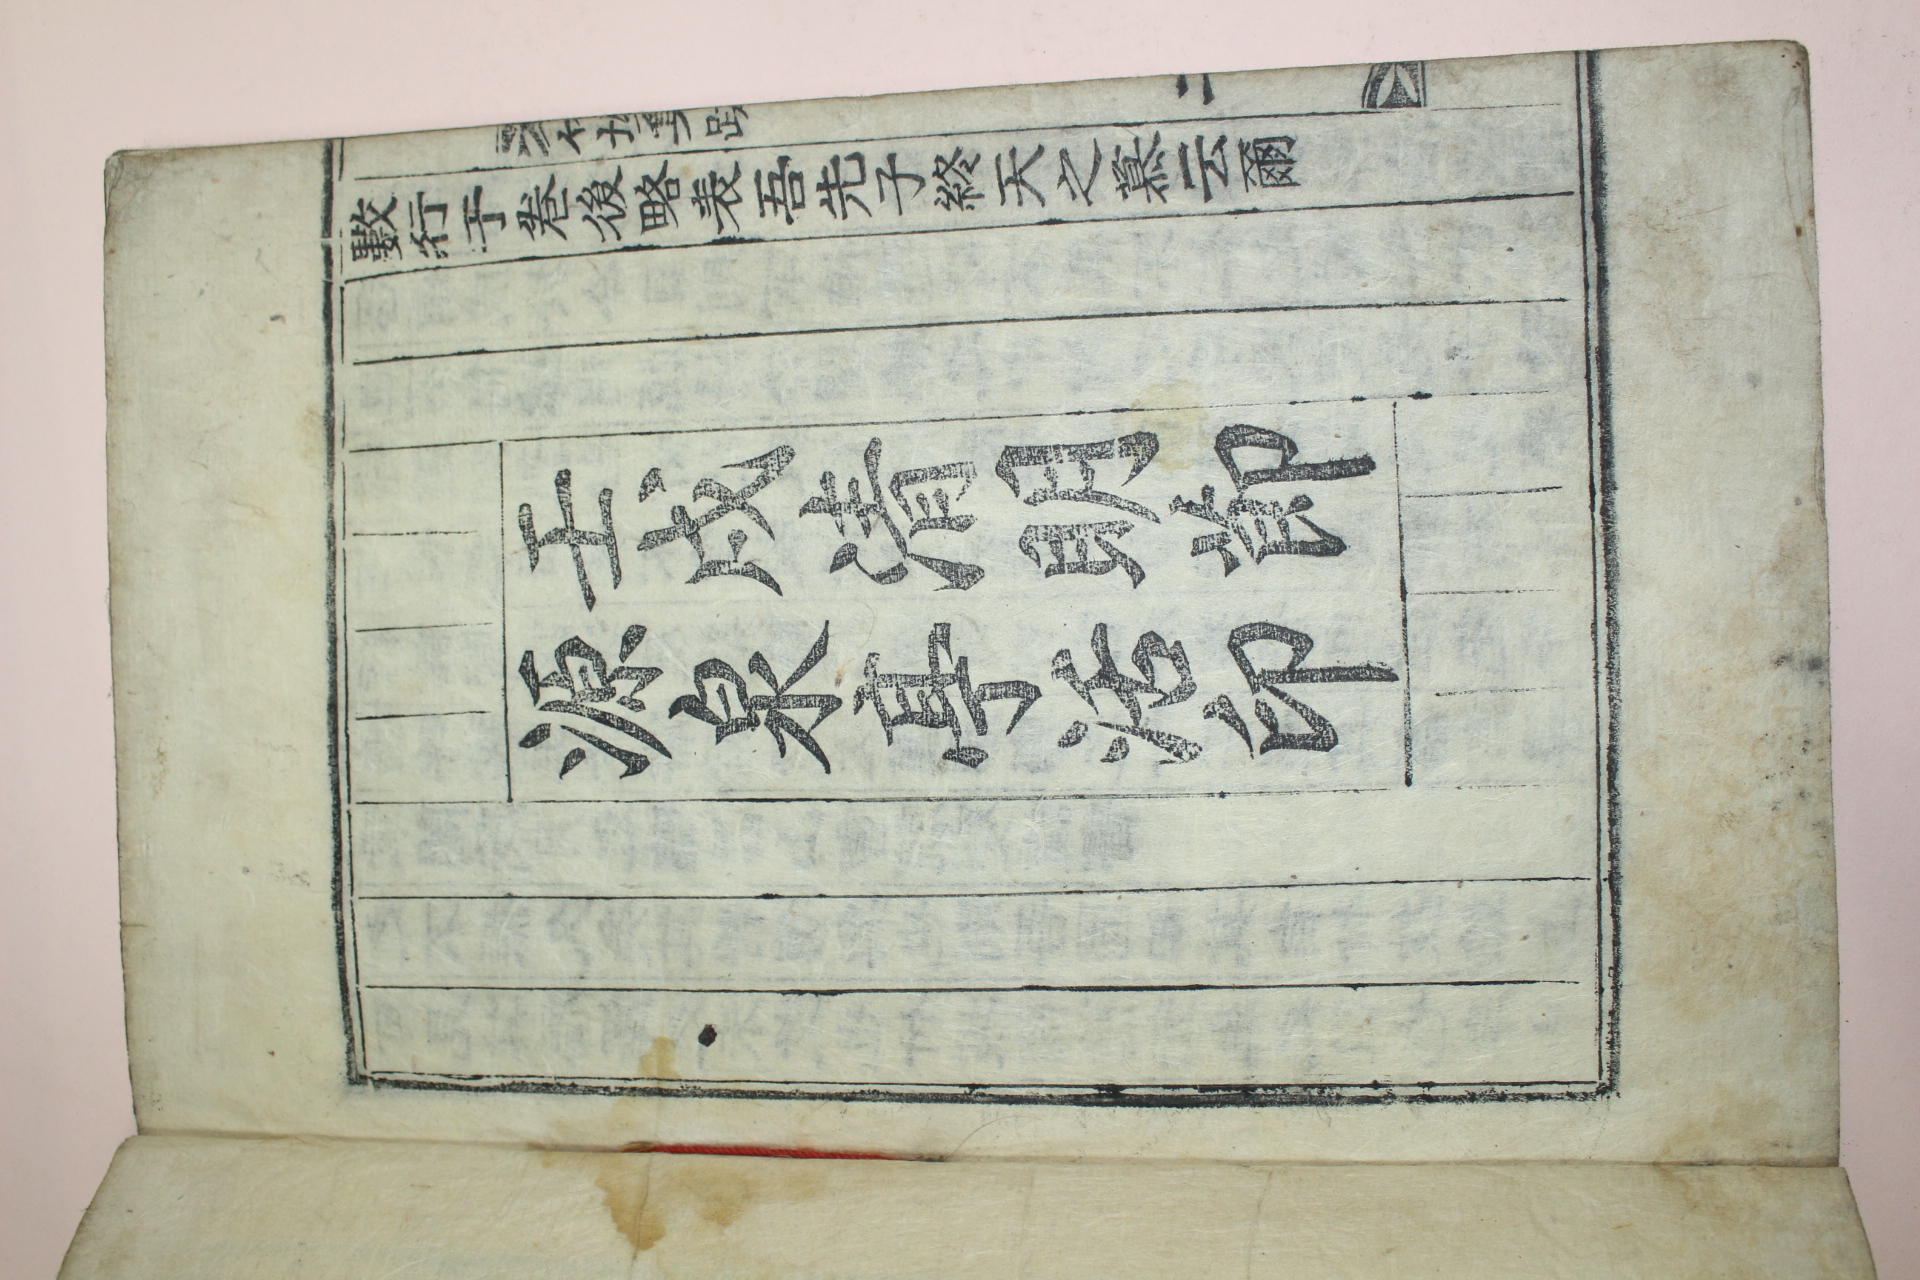 數行于卷後略表吾先子終天之慕云爾
壬戌清明節
源泉亭活印